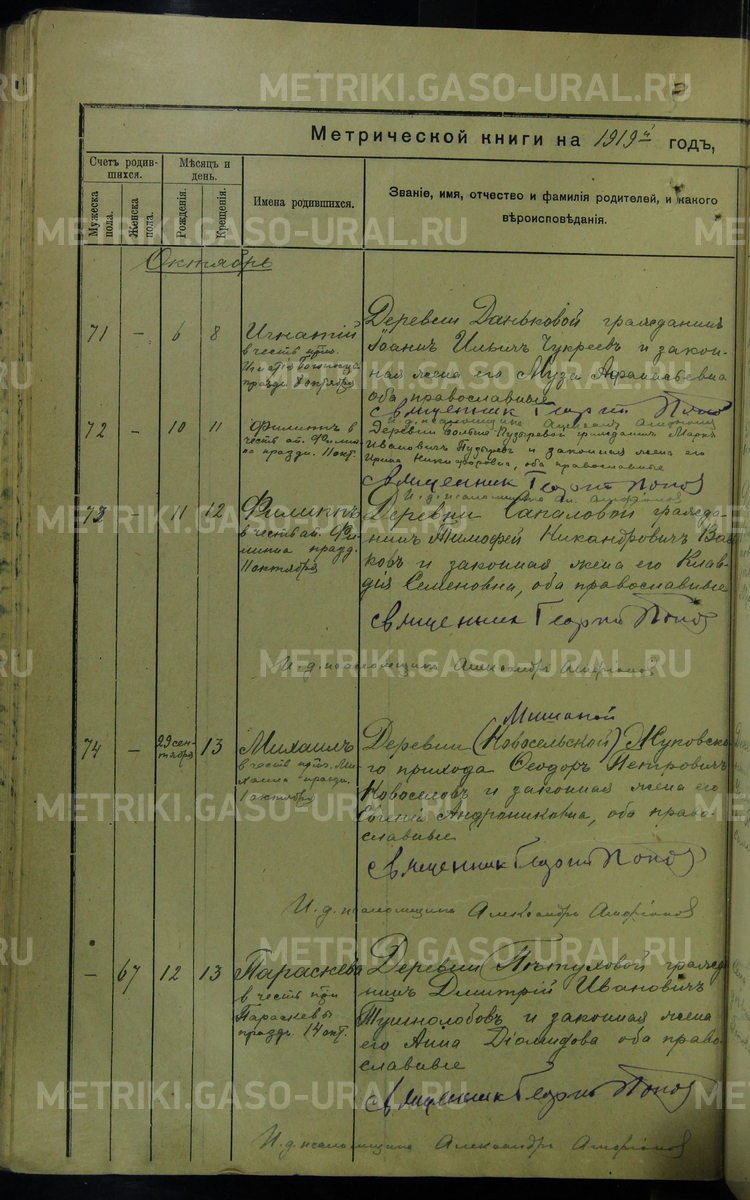 METRIKI.GASO-URAL.RU
Метрической книги на 1919й годъ,
Счетъ родив-
шихся.
Мужеска
пола.
Женска
пола.
Мѣсяцъ и
день.
Рожденія.
Крещенія.
Имена родившихся.
Званіе, имя, отчество и фамилія родителей, и какого
вѣроисповѣданія.
Октябрь
71 — 6 8
Игнатій
в честь
празд. октября
Деревни Даньковой гражданинъ
Іоаннъ Ильичъ Чукреевъ и закон-
ная жена его Муза Афанасьевна
оба православные
Священник Георгій Попов
И.д. псаломщика
72 — 10 11
Филиппъ в
честь ап. Филип-
па празд. 11 окт.
Деревни Пузыревой гражданинъ Маркъ
Ивановичъ Пузыревъ и законная жена его
Ирина Никифоровна, оба православные
Священник Георгій Попов
И.д. псаломщика Ал.
73 — 11 12
Филиппъ
в честь ап. Фи-
липпа празд.
11 октября
Деревни Сапаловой гражда-
нинъ Тимофей Никандровичъ
и законная жена его Клав-
дія Семеновна, оба православные
Священник Георгій Попов
И.д. псаломщика Александръ
74 — 29 сен-
тября 13
Михаилъ
в честь
празд.
1 октября
Деревни (Новосельской) Жуковска-
го прихода Ѳеодоръ Петровичъ
Новоселовъ и законная жена его
Евгенія Андрониковна, оба право-
славные
Священник Георгій Попов
И.д. псаломщика Александръ
— 67 12 13
Параскева
в честь
Параскевы
празд. 14 окт.
Деревни Пѣтуховой гражда-
нинъ Дмитрій Ивановичъ
Тушнолобовъ и законная жена
его Анна Діомидова оба право-
славные
Священник Георгій Попов
И.д. псаломщика Александръ